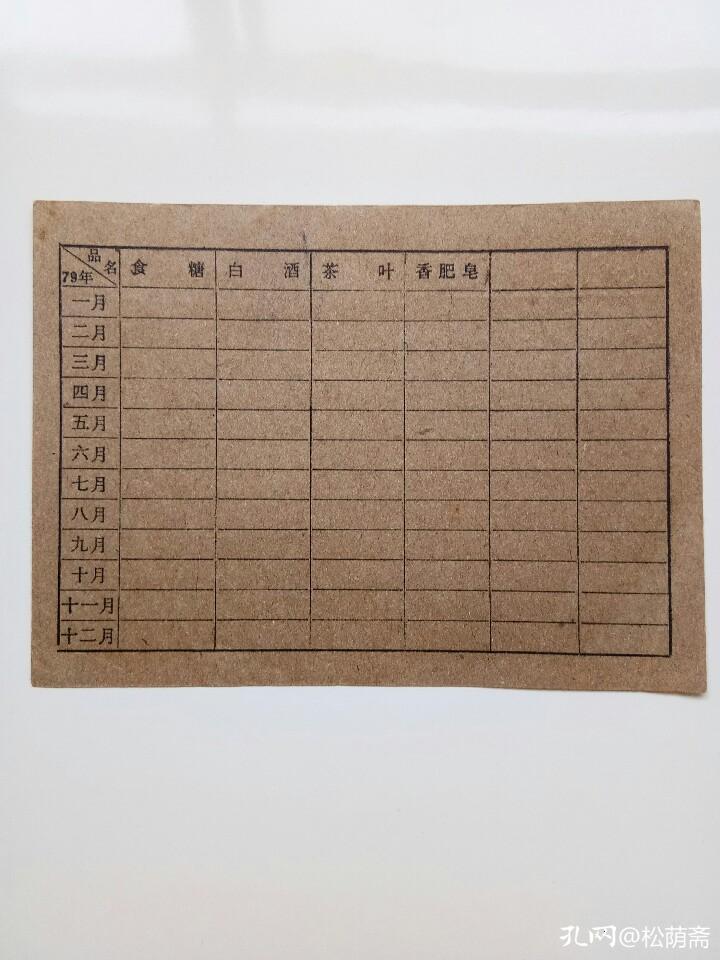 品名
79年
食糖 白酒 茶叶 香肥皂
一月
二月
三月
四月
五月
六月
七月
八月
九月
十月
十一月
十二月
孔网@松荫斋